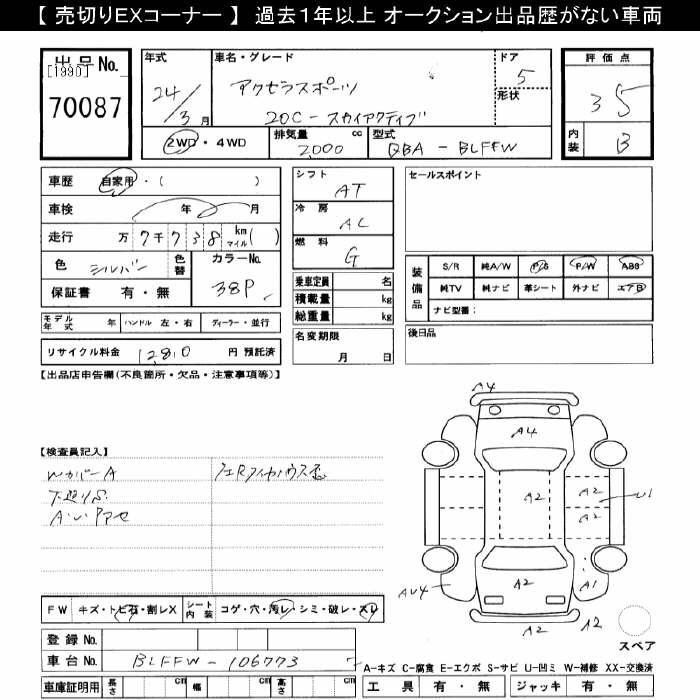 【 売切りEXコーナー 】 過去1年以上 オークション出品歴がない車両
出品No.
[1990]
70087
年式 24/3月
車名・グレード
アクセラスポーツ
20C-スカイアクティブ
ドア 5
形状
2WD・4WD
排気量 2,000 cc
型式 QBA-BLFFW
評価点 35
内装 B
車歴 自家用・( )
車検 年 月
走行 万 7千738 km マイル ( )
色 シルバー 色替 カラーNo. 38P
保証書 有・無
モデル年式 年 ハンドル 左・右 ディーラー・並行
リサイクル料金 12810 円 預託済
シフト AT
冷房 AC
燃料 G
乗車定員 名
積載量 kg
総重量 kg
名変期限 月 日
セールスポイント
装備品
S/R 純A/W P/S P/W ABS
純TV 純ナビ 革シート 外ナビ エアB
ナビ型番:
後日品
【出品店申告欄(不良箇所・欠品・注意事項等)】
【検査員記入】
WカバーA
下廻りS
A・U・Pアセ
A4
A4
A2
A2
A2
U1
A2
A1
AU4
A2
A2
FW キズ・トビ石・割レX シート内装 コゲ・穴・汚レ・シミ・破レ・スレ
登録No.
車台No. BLFFW-106773
車庫証明用 長さ cm 幅 cm 高さ cm
スペア
A-キズ C-腐食 E-エクボ S-サビ U-凹ミ W-補修 XX-交換済
工具 有・無 ジャッキ 有・無